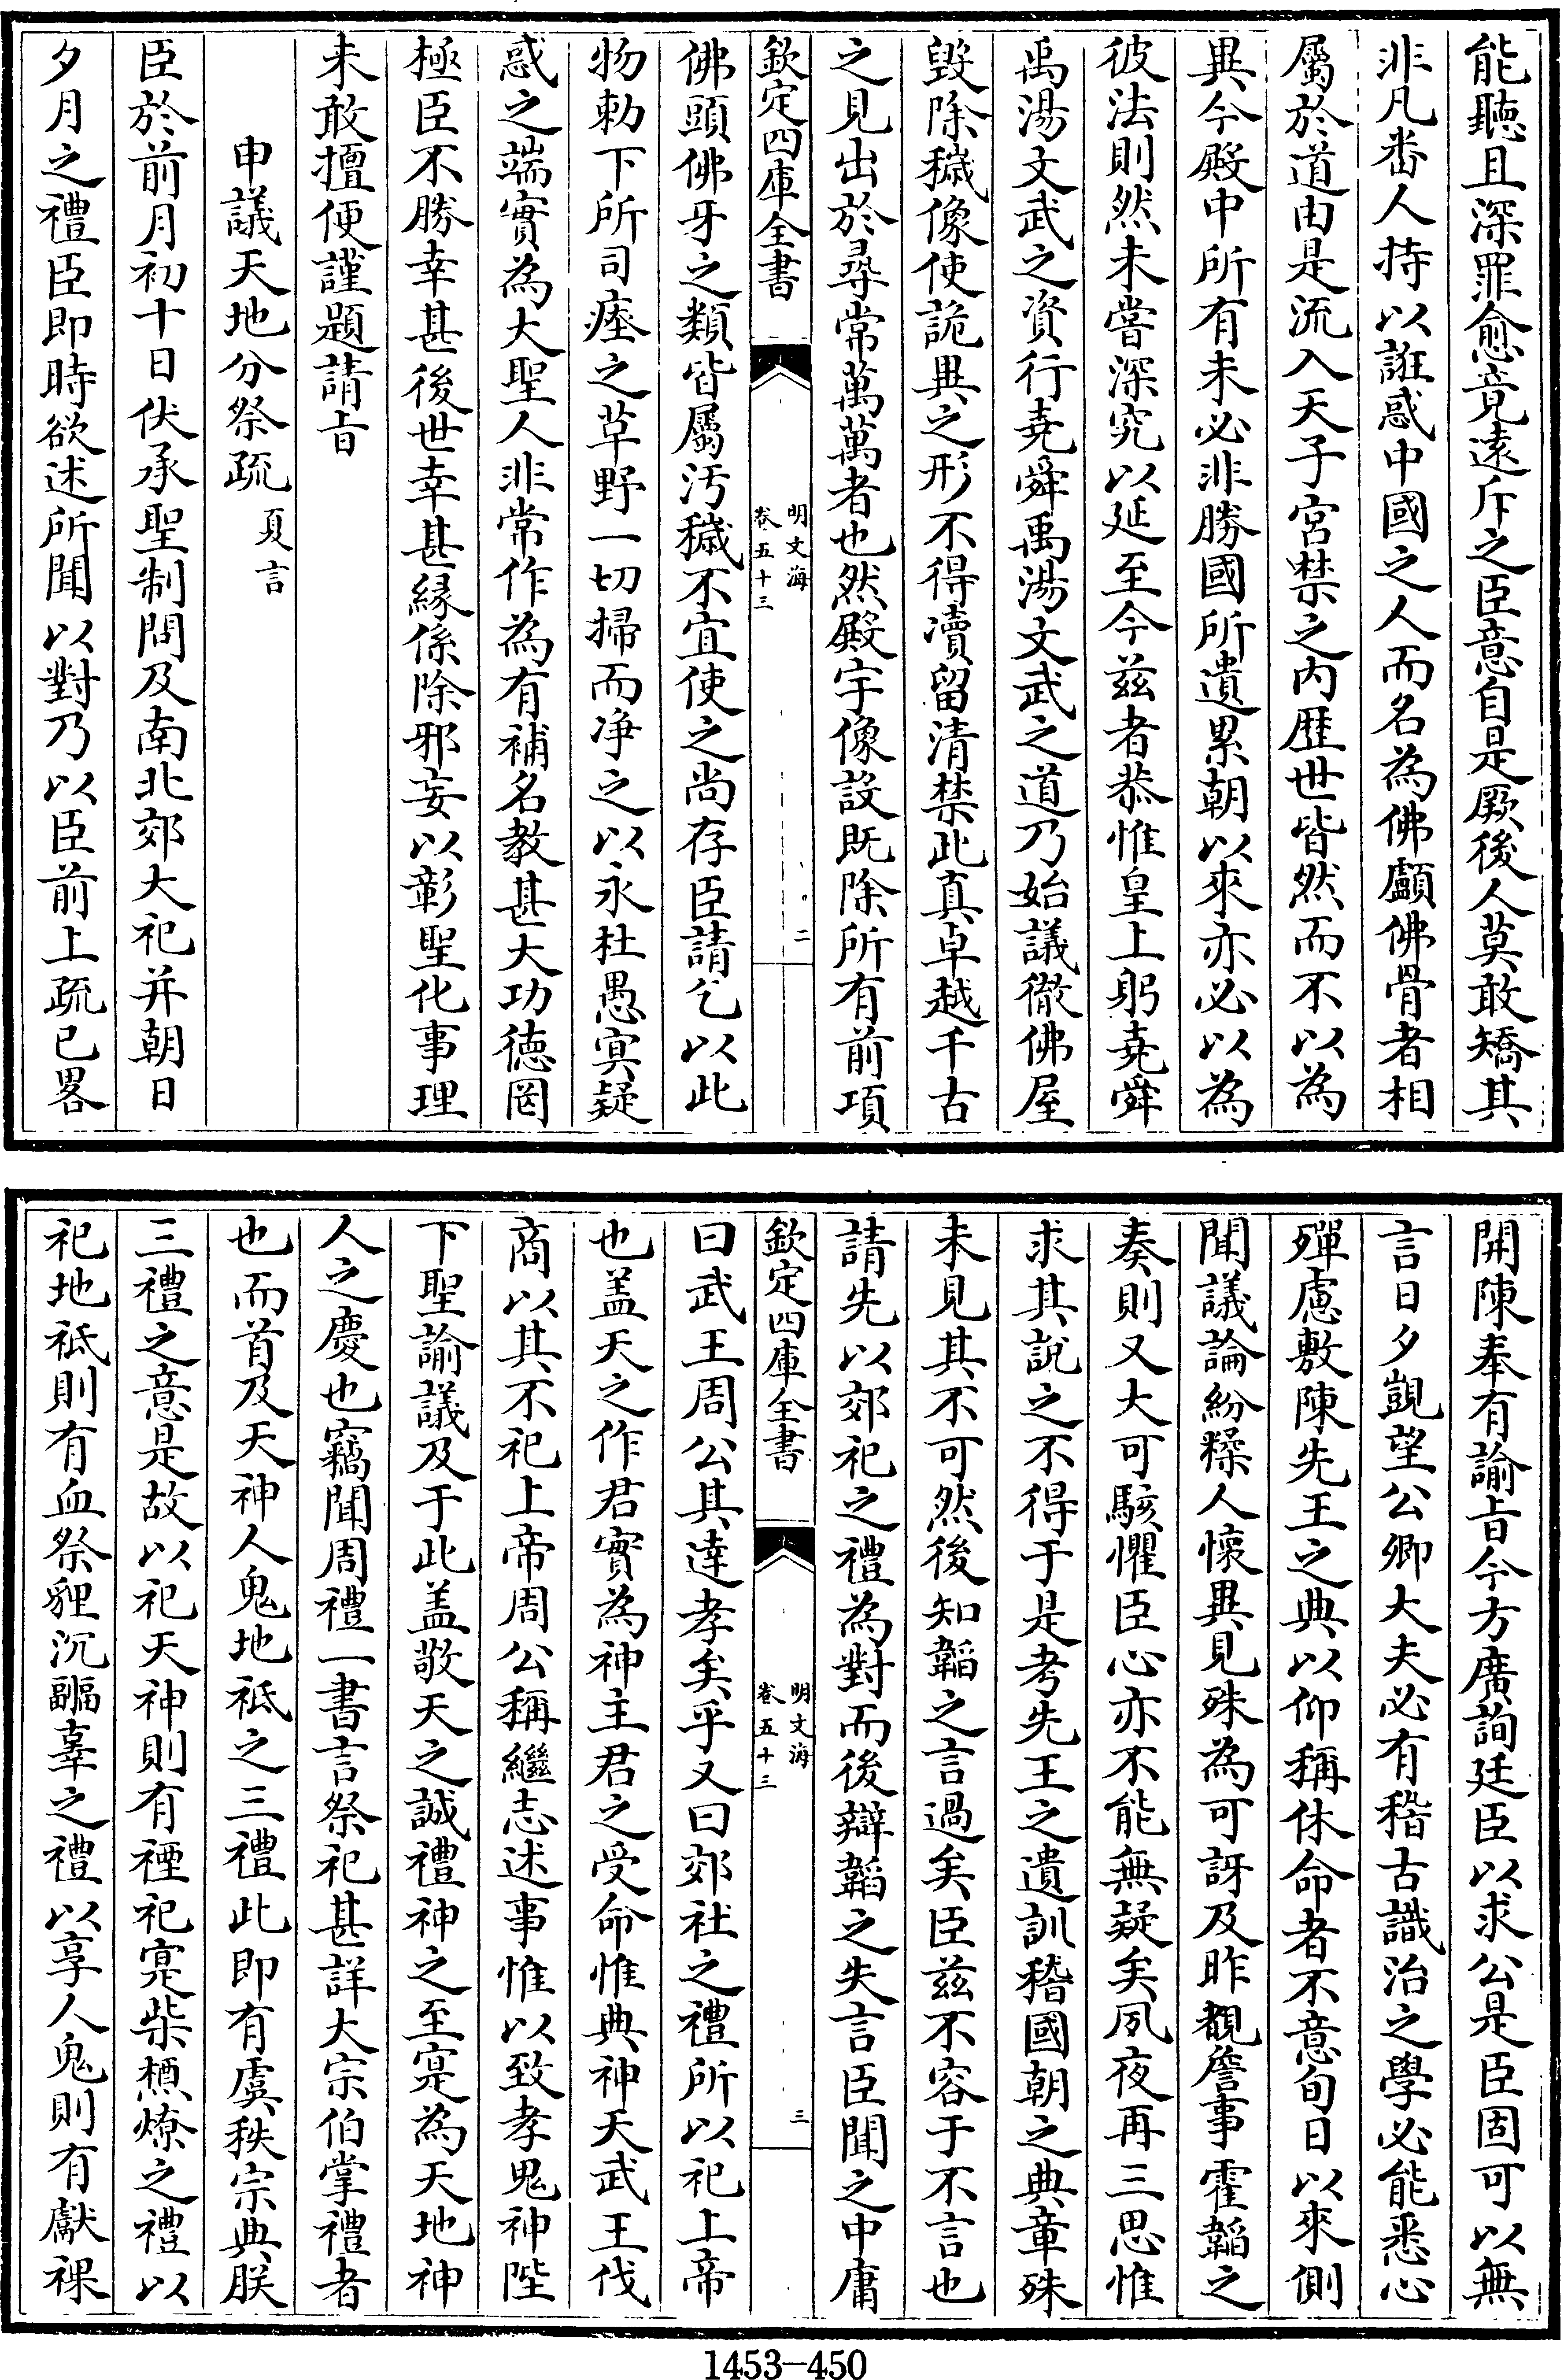 能聽且深罪愈竟遠斥之臣意自是厥後人莫敢矯其
非凡畨人持以誑惑中國之人而名為佛顱佛骨者相
屬於道由是流入天子宮禁之内歴世皆然而不以為
異今殿中所有未必非勝國所遺累朝以來亦必以為
彼法則然未嘗深究以延至今兹者恭惟皇上躬堯舜
禹湯文武之資行堯舜禹湯文武之道乃始議徹佛屋
毀除穢像使詭異之形不得凟留清禁此真卓越千古
之見出於尋常萬萬者也然殿宇像設既除所有前項
欽定四庫全書
明文海
卷五十三
二
佛頭佛牙之類皆屬汚穢不宜使之尚存臣請乞以此
物勅下所司瘞之草野一切掃而净之以永杜愚㝠疑
惑之端實為大聖人非常作為有補名教甚大功徳罔
極臣不勝幸甚後世幸甚縁係除邪妄以彰聖化事理
未敢擅便謹題請㫖
申議天地分祭疏 夏言
臣於前月初十日伏承聖制問及南北郊大祀并朝日
夕月之禮臣即時欲述所聞以對乃以臣前上疏已畧
開陳奉有諭㫖今方廣詢廷臣以求公是臣固可以無
言日夕覬望公卿大夫必有稽古識治之學必能悉心
殫慮敷陳先王之典以仰稱休命者不意旬日以來側
聞議論紛糅人懷異見殊為可訝及昨覩詹事霍韜之
奏則又大可駭懼臣心亦不能無疑矣夙夜再三思惟
求其說之不得于是考先王之遺訓稽國朝之典章殊
未見其不可然後知韜之言過矣臣兹不容于不言也
請先以郊祀之禮為對而後辯韜之失言臣聞之中庸
欽定四庫全書
明文海
卷五十三
三
曰武王周公其逹孝矣乎又曰郊社之禮所以祀上帝
也盖天之作君實為神主君之受命惟典神天武王伐
商以其不祀上帝周公稱繼志述事惟以致孝鬼神陛
下聖諭議及于此盖敬天之誠禮神之至寔為天地神
人之慶也竊聞周禮一書言祭祀甚詳大宗伯掌禮者
也而首及天神人鬼地祗之三禮此即有虞秩宗典朕
三禮之意是故以祀天神則有禋祀寔柴槱燎之禮以
祀地祗則有血祭貍沉疈辜之禮以享人鬼則有獻祼
1453-450